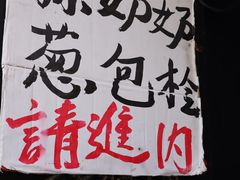 奶奶
葱包桧
請進内